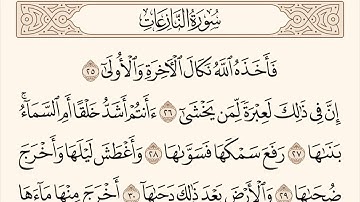 سُورَةُ النَّازِعَاتِ
فَأَخَذَهُ اللَّهُ نَكَالَ الْآخِرَةِ وَالْأُولَىٰٓ ٢٥
إِنَّ فِي ذَٰلِكَ لَعِبْرَةً لِّمَن يَخْشَىٰٓ ٢٦ ءَأَنتُمْ أَشَدُّ خَلْقًا أَمِ السَّمَآءُۚ
بَنَىٰهَا ٢٧ رَفَعَ سَمْكَهَا فَسَوَّىٰهَا ٢٨ وَأَغْطَشَ لَيْلَهَا وَأَخْرَجَ
ضُحَىٰهَا ٢٩ وَالْأَرْضَ بَعْدَ ذَٰلِكَ دَحَىٰهَآ ٣٠ أَخْرَجَ مِنْهَا مَآءَهَا